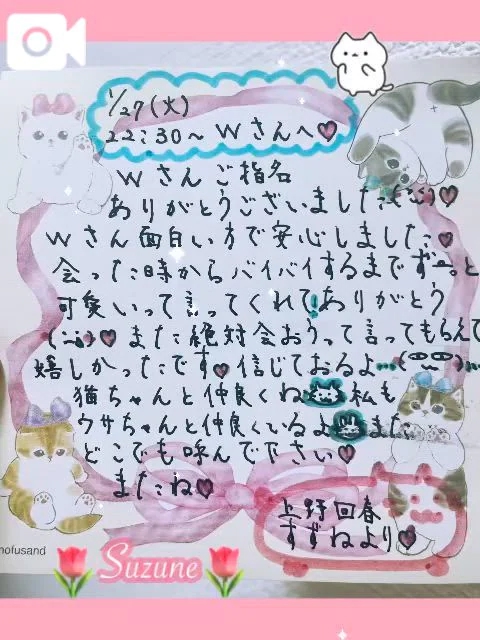 1/27(火)
22:30〜Wさんへ♥
Wさんご指名
ありがとうございました♥
Wさん面白い方で安心しました♥
会った時からバイバイするまでず〜っと
可愛いって言ってくれて!ありがとう
♥また絶対会おうって言ってもらえて
嬉しかったです♥信じておるよ…
猫ちゃんと仲良くね 私も
ウサちゃんと仲良くいるよ また
どこでも呼んで下さい♥
またね♥
上野回春
すずねより♥
mofusand
Suzune